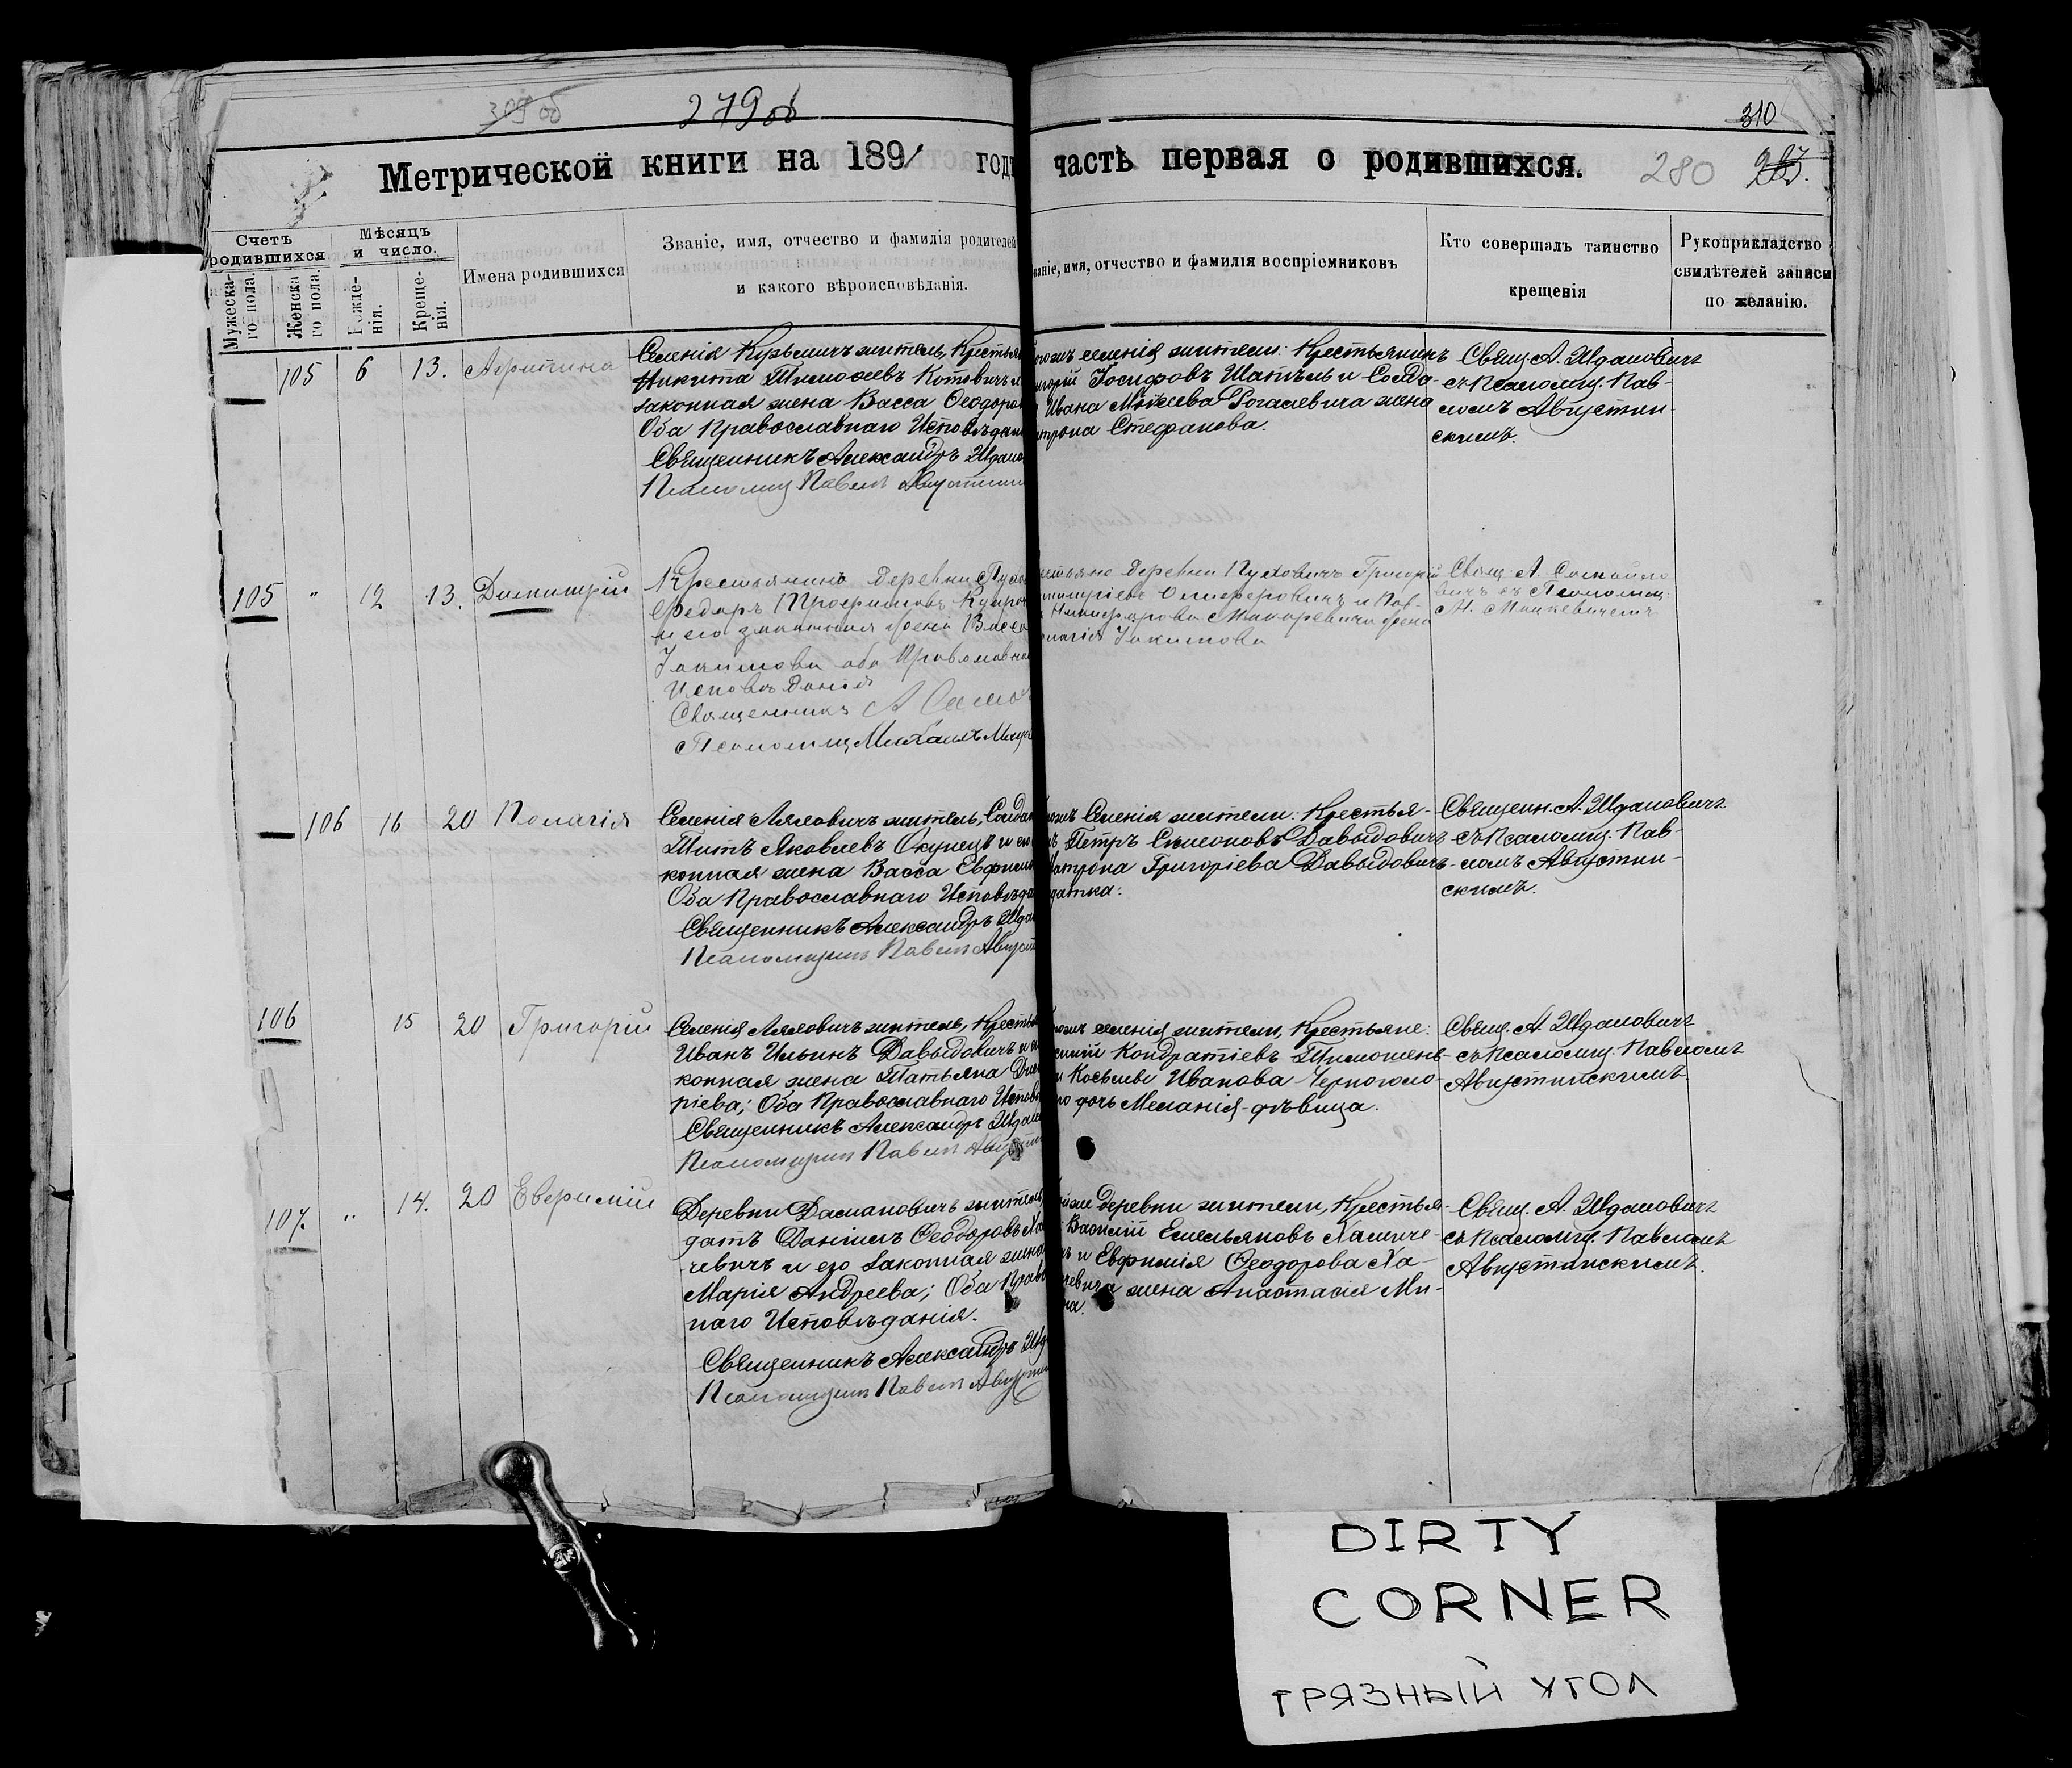 309 об
279 об
310
280
Метрической книги на 1891 годъ
часть первая о родившихся.
Счетъ родившихся
Мужеска-го пола.
Женска го пола.
Мѣсяцъ и число.
Рожде-нія.
Креще-нія.
Имена родившихся
Званіе, имя, отчество и фамилія родителей
и какого вѣроисповѣданія.
званіе, имя, отчество и фамилія воспріемниковъ
Кто совершалъ таинство
крещенія
Рукоприкладство
свидѣтелей записи
по желанію.
105 6 13.
Селенія Кузьмичъ житель, Крестья
Никита Тимофеевъ Котовичъ и
законная жена Васса Ѳеодоро
Оба Православнаго Исповѣдан
Священникъ Александръ Ждано
Псаломщ Павелъ
селенія жители: Крестьянинъ
Іосифовъ Шатѣль и Солда-
Ивана Рогалевича жена
Стефанова.
Свящ. А. Ждановичъ
съ Псаломщ. Пав-
ломъ Августин-
скимъ.
105 " 12 13. Димитрій
Крестьянинъ деревни Пухо
Федоръ
и его законная жена Васса
Іакимова оба Православна
Исповѣданія
Священникъ А Само
Псаломщ Михаилъ Мац
деревни Пуховичъ Григорій
и Пав-
Никифорова Макаревича жена
Іакимова
Свящ. А. Самойло
вичъ съ Псаломщ.
М. Мацкевичемъ
106 16 20 Полагія
Селенія Ляховичъ житель, Солдат
Титъ Яковлевъ Окунецъ и его
конная жена Васса Евфим
Оба Православнаго Исповѣда
Священникъ Александръ Жда
Псаломщикъ Павелъ Август
Селенія жители: Крестья-
Петръ Симеоновъ Давыдовичъ
Матрона Григоріева Давыдовичъ-
датка.
Священ. А. Ждановичъ
съ Псаломщ. Пав-
ломъ Августин-
скимъ.
106 15 20 Григорій
Селенія Ляховичъ житель, Крестья
Иванъ Ильинъ Давыдовичъ и
конная жена Татьяна Дми
ріева; Оба Православнаго Испов
Священникъ Александръ Ждан
Псаломщикъ Павелъ Август
селенія жители, Крестьяне:
Кондратіевъ Тимошен-
Иванова Черноголо-
дочь Меланія-дѣвица.
Свящ. А Ждановичъ
съ Псаломщ. Павломъ
Августинскимъ.
107. " 14. 20 Евфимій
Деревни Даманович житель,
датъ Даніилъ Ѳеодоровъ Ха
чевичъ и его законная жена
Марія Андреева; Оба Прав
наго Исповѣданія.
Священникъ Александръ Жд
Псаломщикъ Павелъ Август
же деревни жители, Крестья-
Василій Емельяновъ
и Евфимія Ѳеодорова Ха-
жена Анастасія Ми-
на.
Свящ. А. Ждановичъ
съ Псаломщ. Павломъ
Августинскимъ.
DIRTY
CORNER
ГРЯЗНЫЙ УГОЛ